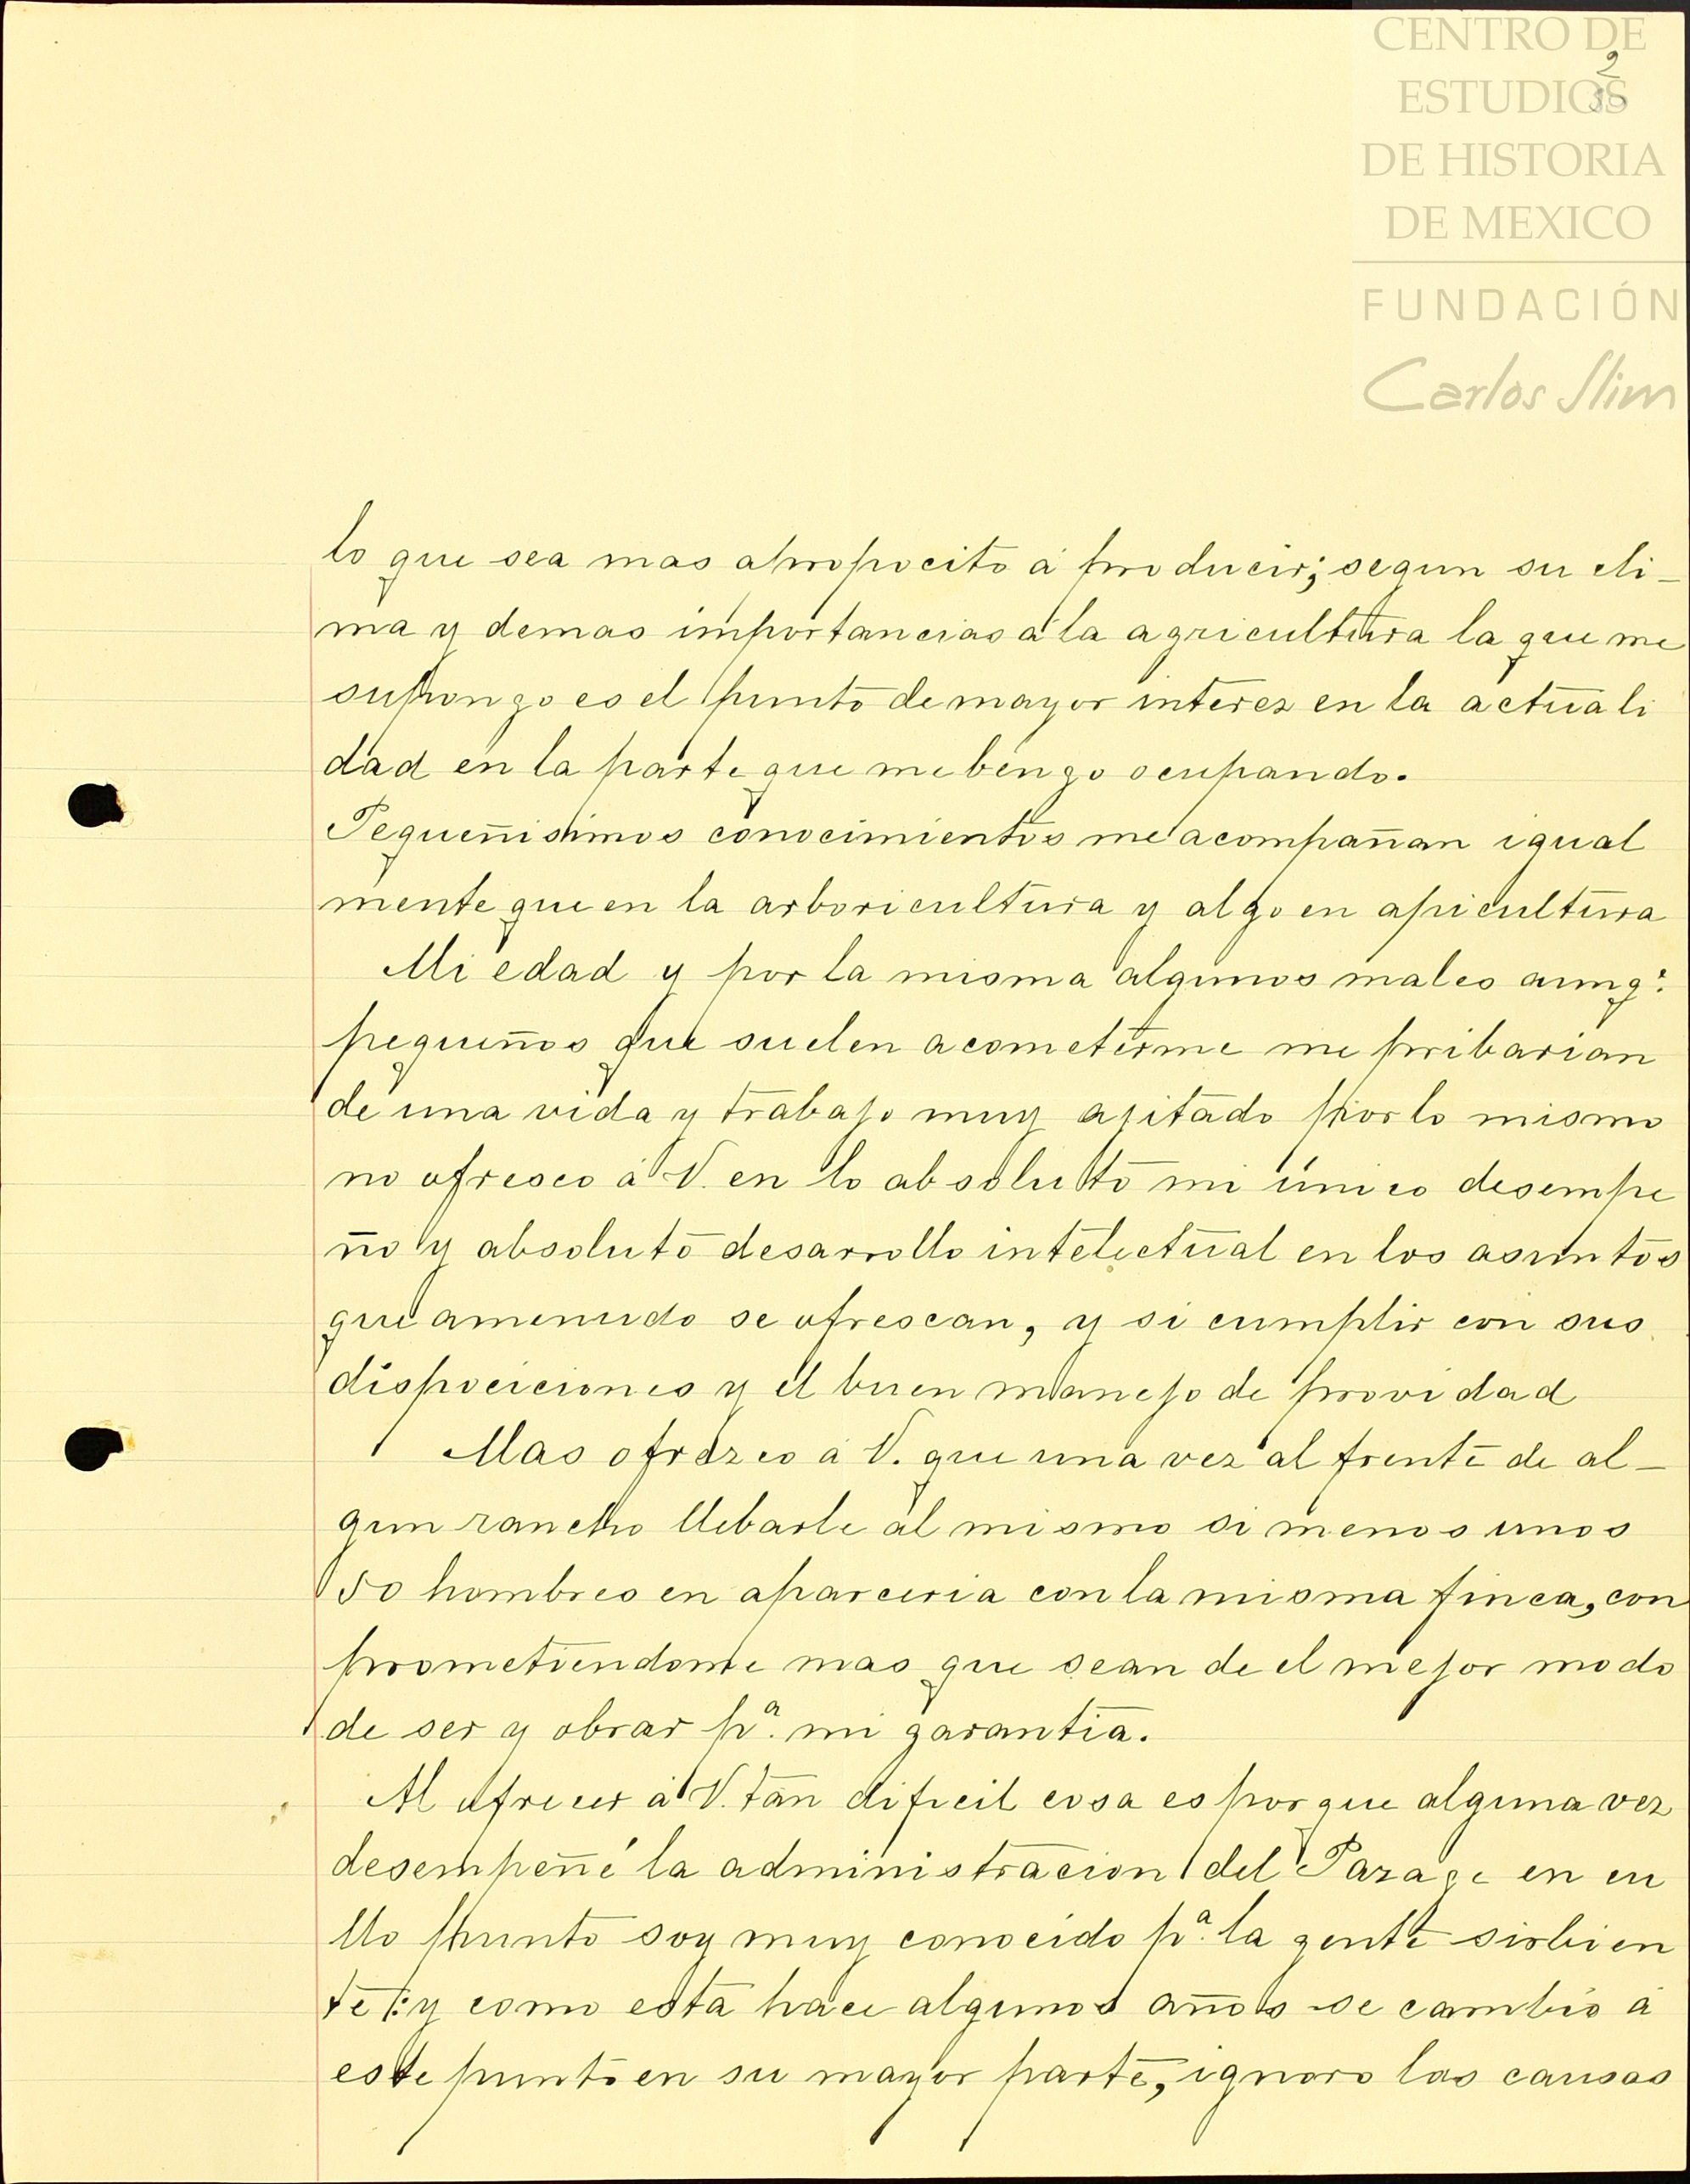 CENTRO DE
ESTUDIOS
DE HISTORIA
DE MEXICO
FUNDACIÓN
Carlos Slim
2
lo que sea mas apropocito á producir; segun su cli-
ma y demas importancias á la agricultura la que me
supongo es el punto de mayor interez en la actuali
dad en la parte que me bengo ocupando.
Pequeñisimos conocimientos me acompañan igual
mente que en la arboricultura y algo en apicultura
Mi edad y por la misma algunos males aunq.e
pequeños que suelen acometerme me pribarian
de una vida y trabajo muy ajitado por lo mismo
no ofresco á V. en lo absoluto mi único desempe
ño y absoluto desarrollo intelectual en los asuntos
que amenudo se ofrescan, y si cumplir con sus
dispociciones y el buen manejo de providad
Mas ofrezco á V. que una vez al frente de al-
gun rancho llebarle al mismo si menos unos
50 hombres en aparceria con la misma finca, con
prometiendome mas que sean de el mejor modo
de ser y obrar p.a mi garantia.
Al ofrecer á V. tan dificil cosa es por que alguna vez
desempeñé la administracion del Pazaje en cu
llo punto soy muy conocido p.a la gente sirbien
te: y como esta hace algunos años se cambio á
este punto en su mayor parte, ignoro las causas